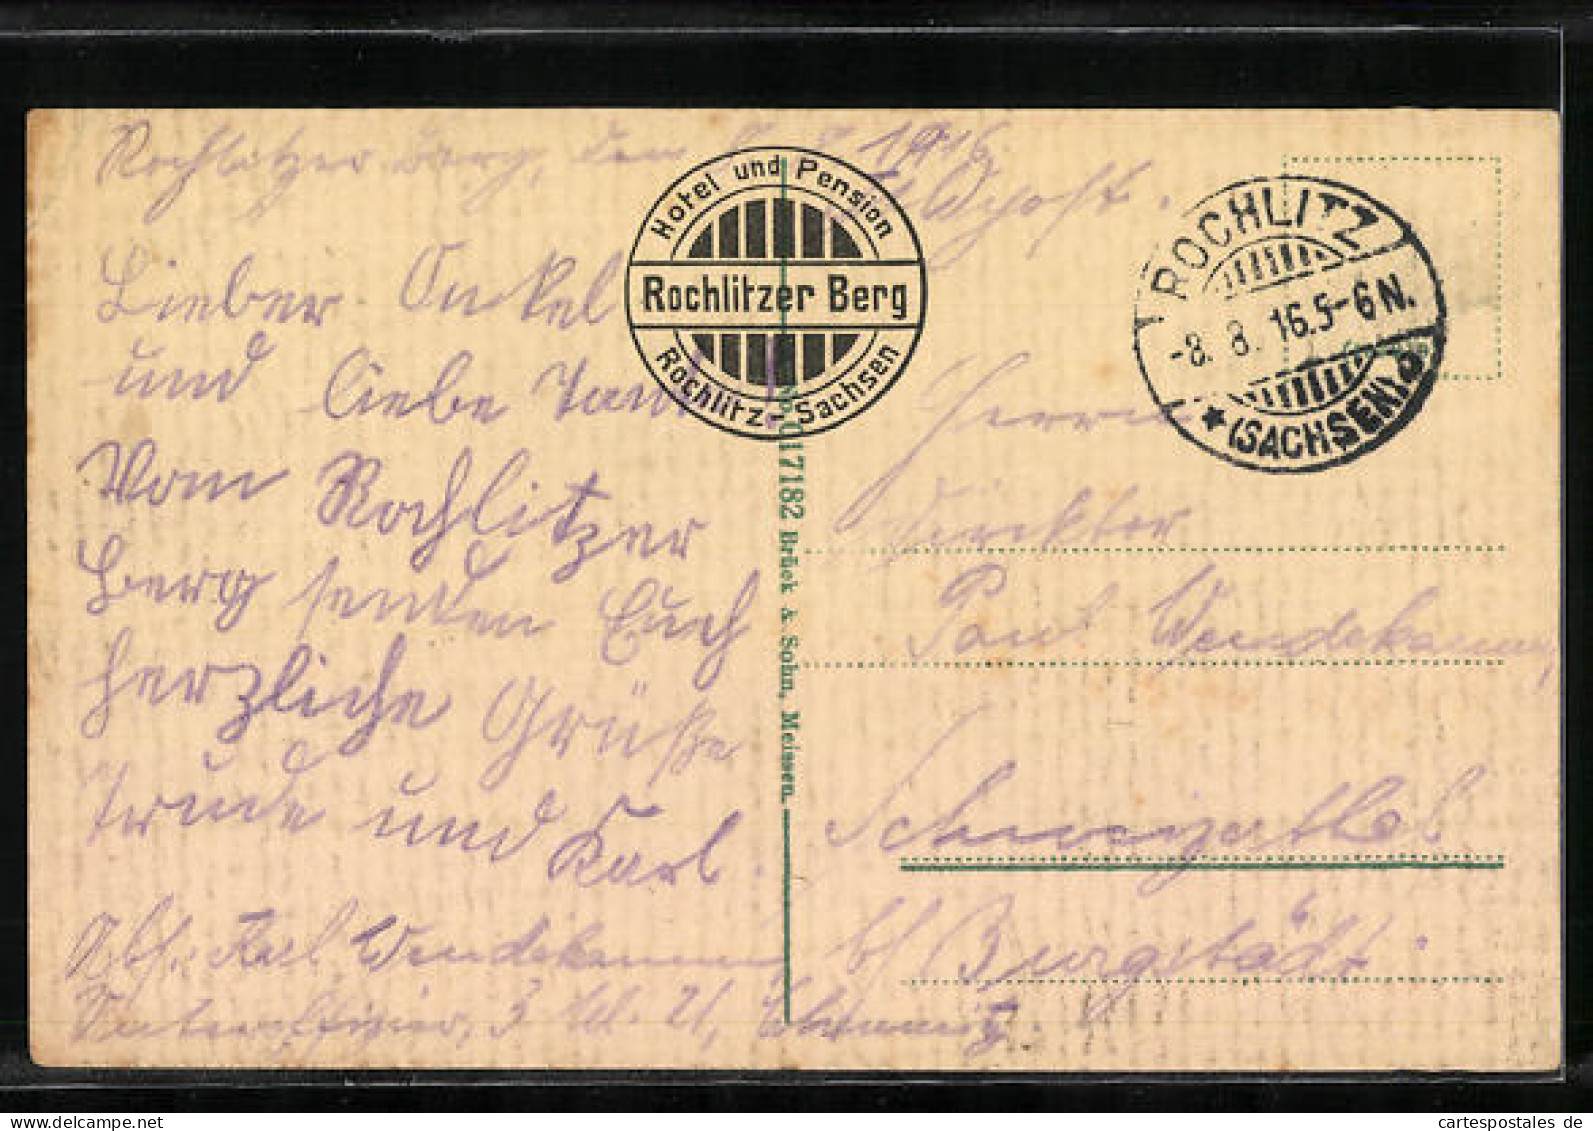 Rochlitzer Berg, den 1916.
Feldpost.
Lieber Onkel
und liebe Tante!
Vom Rochlitzer
Berg senden Euch
herzliche Grüße
Trude und Karl.
Abs.: Karl Wendekamm
Unteroffizier, 3.
Hotel und Pension
Rochlitzer Berg
Rochlitz-Sachsen
ROCHLITZ
-8. 8. 16.5-6N.
* (SACHSEN)
No. 017182 Brück & Sohn, Meissen.
Herrn
Direktor
Paul Wendekamm
Schweizerthal
b/ Burgstädt.
cartespostales.de
www.delcampe.net